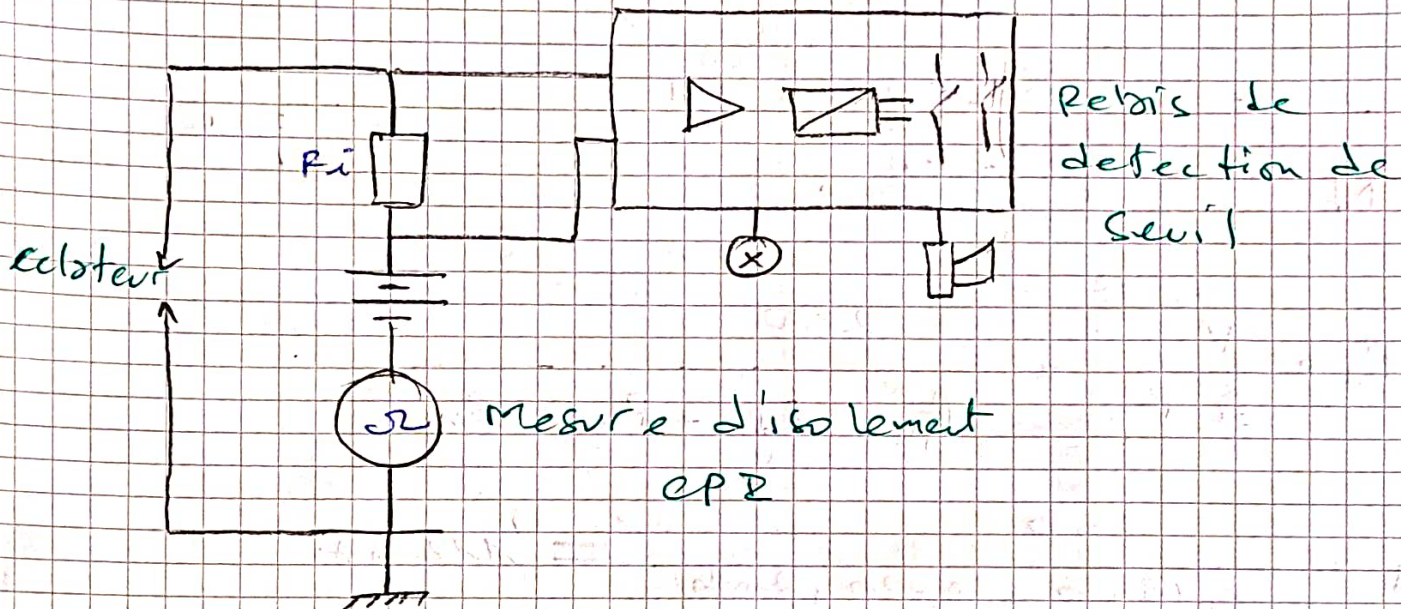 Relais de
detection de
Seuil
Ri
eclateur
Ω
Mesure d'isolement
CPI